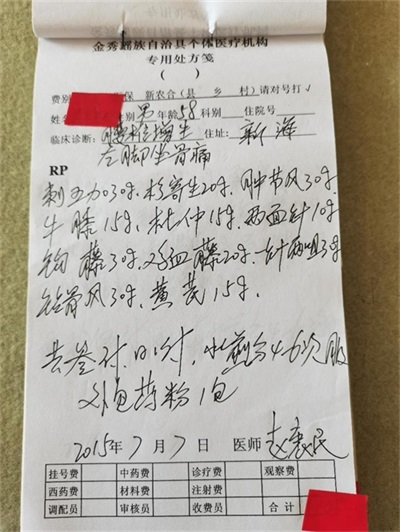 金秀瑶族自治县个体医疗机构
专用处方笺
( )
费别 保 新农合(县 乡 村)请对号打√
姓名 别 男 年龄 58 科别 住院号
临床诊断: 增生 住址: 新
左脚坐骨痛
RP
刺五加30g. 杉寄生20g. 肿节风30g.
牛膝15g. 杜仲15g. 两面针10g
钩藤30g. 血藤20g. 3g
骨风30g. 黄芪15g.
日 付. 水煎分4-6次服
外包药粉1包
2015年7月7日 医师 赵
挂号费 中药费 诊疗费 观察费
西药费 材料费 注射费
调配员 审核员 收费员 合计